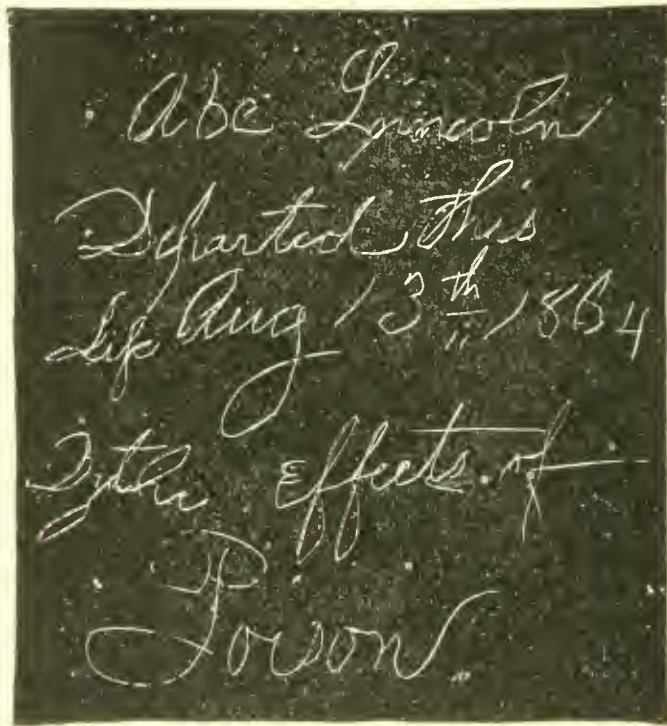 Abe Lincoln
Departed this
Life Aug 13th, 1864
By the Effects of
Poison.